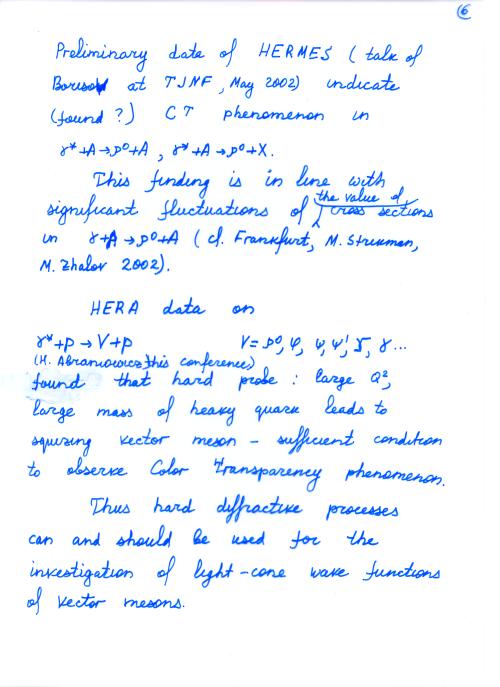 6
Preliminary date of HERMES (talk of
Borisov at TJNF, May 2002) indicate
(found ?) CT phenomenon in
γ*+A→ρ⁰+A, γ*+A→ρ⁰+X.
This finding is in line with
significant fluctuations of the value of cross sections
in γ+A→ρ⁰+A (cl. Frankfurt, M. Strikman,
M. Zhalov 2002).
HERA data on
γ*+p→V+p V=ρ⁰, φ, ψ, ψ', Υ, γ...
(H. Abramowicz, this conference)
found that hard probe : large Q²,
large mass of heavy quark leads to
squizing vector meson - sufficient condition
to observe Color Transparency phenomenon.
Thus hard diffractive processes
can and should be used for the
investigation of light-cone wave functions
of vector mesons.